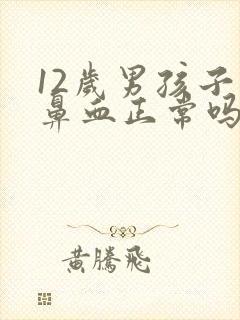 12歲男孩子
鼻血正常吗
黄騰飛